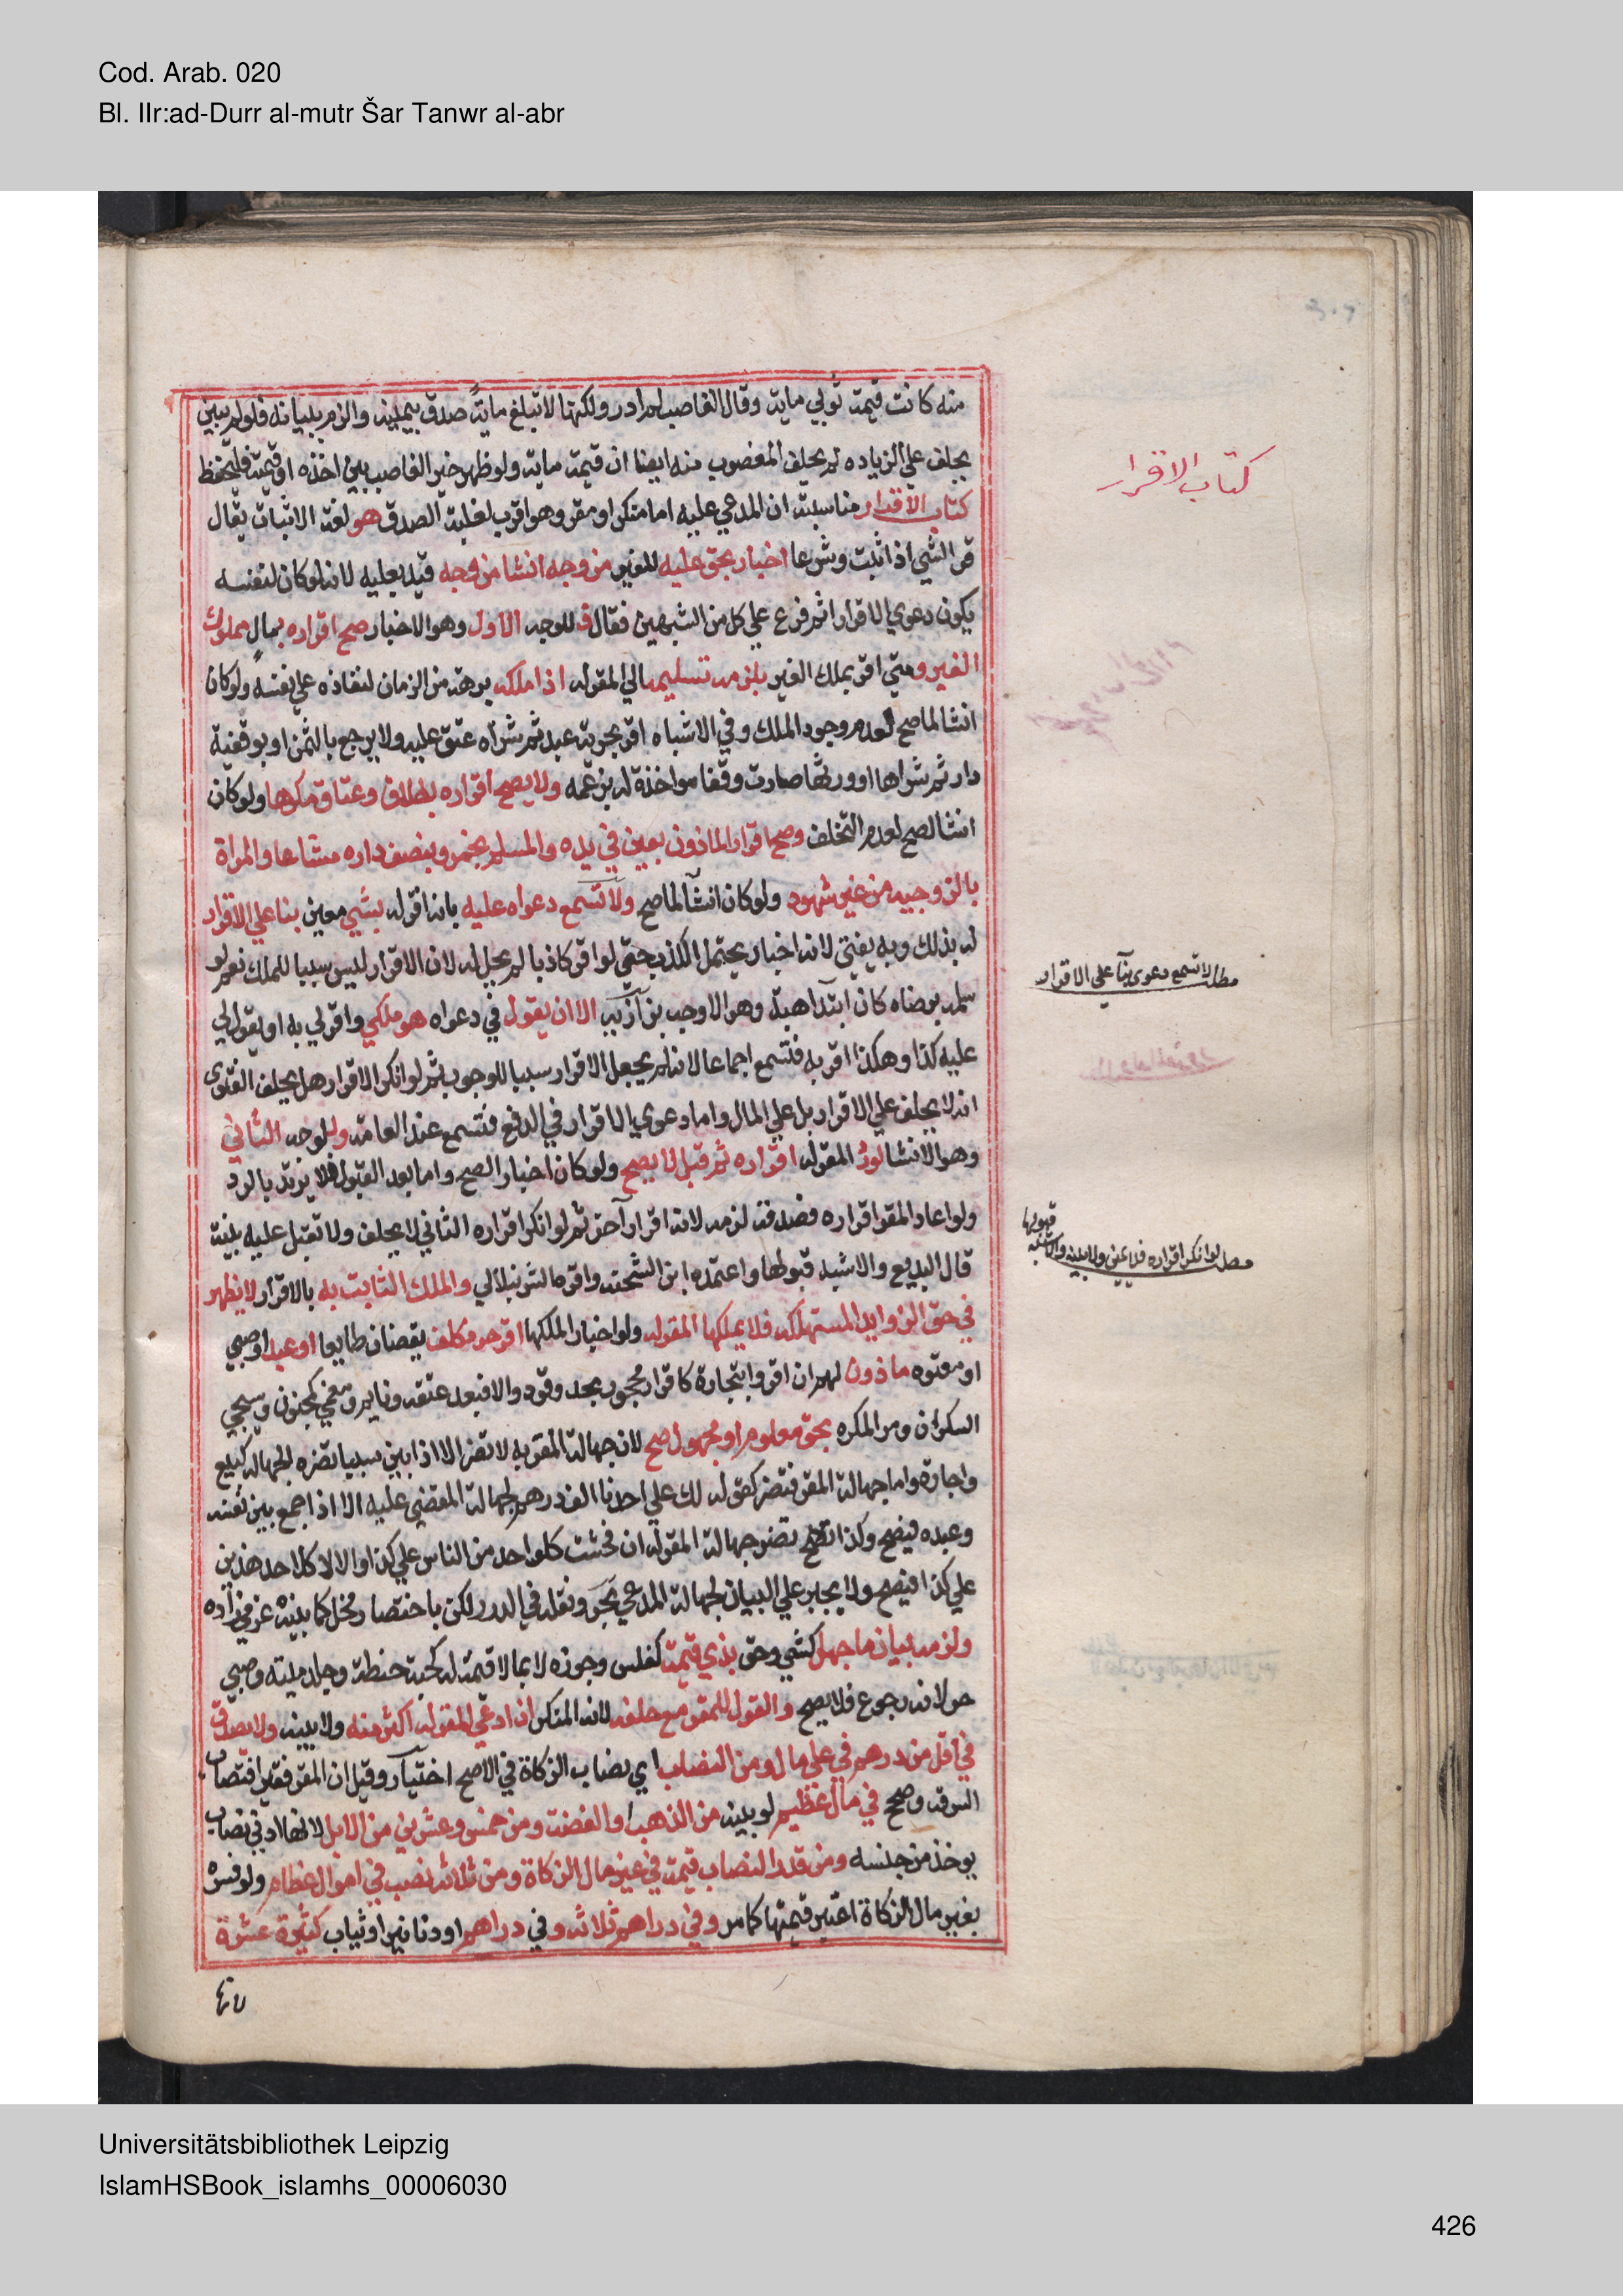 Cod. Arab. 020
Bl. IIr:ad-Durr al-mutr Šar Tanwr al-abr
منه كانت قيمة ثوبي ماية وقال الغاصب لم ادر ولكنها لا تبلغ ماية صدق بيمينه والزم ببيانه فلو لم يبين
يحلف علي الزياده ثم يحلف المغصوب منه ايضا ان قيمته ماية ولو ظهر خير الغاصب بين اخذه او قيمته فليحفظ
كتاب الاقرار مناسبته ان المدعي عليه اما منكر او مقر وهو اقرب لغلبة الصدق هو لغة الاثبات يقال
قر الشي اذا ثبت وشرعا اخبار بحق عليه للغير من وجه انشا من وجه قيد بعليه لانه لو كان لنفسه
يكون دعوي لا اقرار اثم فرع علي كل من الشبهين فقال فللوجه الاول وهو الاخبار صح اقراره بمال مملوك
الغير ومتي اقر بملك الغير يلزمه تسليمه الي المقر له اذا ملكه برهة من الزمان لنفاذه علي نفسه ولو كان
انشا لما صح لعدم وجود الملك وفي الاشباه اقر بحرية عبد ثم شراه عتق عليه ولا يرجع بالثمن او بوقفية
دار ثم شراها او ورثها صارت وقفا مواخذة له بزعمه ولا يصح اقراره بطلاق وعتاق مكرها ولو كان
انشا لصح لعدم التخلف وصح اقرار الماذون بعين في يده والمسلم بخمر وبنصف داره مشاعا والمراة
بالزوجيه من غير شهود ولو كان انشآ لما صح ولا تسمع دعواه عليه بانه اقر له بشي معين بنا علي الاقرار
له بذلك وبه يفتي لانه اخبار يحتمل الكذب حتي لو اقر كاذبا لم يحل له لان الاقرار ليس سببا للملك نعم لو
سلمه برضاه كان ابتدا هبة وهو الاوجه بزازيه الا ان يقول في دعواه هو ملكي واقر لي به او يقول لي
عليه كذا وهكذا اقر به فتسمع اجماعا لانه لم يجعل الاقرار سببا للوجوب ثم لو انكر الاقرار هل يحلف الفتوى
انه لا يحلف علي الاقرار بل علي المال واما دعوي الاقرار في الدفع فتسمع عند العامة وللوجه الثاني
وهو الانشا لو رد المقر له اقراره ثم قبل لا يصح ولو كان اخبارا لصح واما بعد القبول فلا يرتد بالرد
ولو اعاد المقر اقراره فصدقه لزمه لانه اقرار آخر ثم لو انكر اقراره الثاني لا يحلف ولا تقبل عليه بينة
قال البديع والاشبه قبولها واعتمده ابن الشحنه واقره الشرنبلالي والملك الثابت به بالاقرار لا يظهر
في حق الزوايد المستهلكه فلا يملكها المقر له ولو اخبارا لملكها اقر حر مكلف يقضان طايعا او عبد او صبي
او معتوه ماذون لهم ان اقروا بتجارة كاقرار محجور بحد وقود والا فبعد عتقه ونايم ومغمي كمجنون وسيجي
السكران ومر المكره بحق معلوم او مجهول صح لان جهالة المقر به لا تضر الا اذا بين سببا تضره الجهاله كبيع
واجارة واما جهالة المقر فتضر كقوله لك علي احدنا الف درهم لجهالة المقضي عليه الا اذا جمع بين نفسه
وعبده فيصح وكذا تضر جهالة المقر له ان فحشت كلواحد من الناس علي كذا والا لا كلاحد هذين
علي كذا فيصح ولا يجبر علي البيان لجهالة المدعي بحر ونقله في الدرر لكن باختصار مخل كما بينه عزمي زاده
ولزمه بيان ما جهل كشي وحق بذي قيمة كفلس وجوزه لا بما لا قيمة له كحبة حنطة وجلد ميته وصبي
حر لانه رجوع فلا يصح والقول للمقر مع حلفه لانه المنكر ان ادعي المقر له اكثر منه ولا بينه ولا يصدق
في اقل من درهم في علي مال ومن النصاب اي نصاب الزكاة في الاصح اختيار وقيل ان المقر فقيرا فنصاب
السرقه وصحح في مال عظيم لو بينه من الذهب او الفضة ومن خمس وعشرين من الابل لانها ادني نصاب
يوخذ من جنسه ومن قدر النصاب قيمة في غير مال الزكاة ومن ثلاثه نصب في اموال عظام ولو فسره
بغير مال الزكاة اعتبر قيمتها كما مر وفي دراهم ثلاثه وفي دراهم او دنانير او ثياب كثيرة عشرة
كتاب الاقرار
مطلب لا تسمع دعوى بنآ علي الاقرار
قبولها
مطلب لو انكر اقراره فلا يمين ولا بينه والاشبه
Universitätsbibliothek Leipzig
IslamHSBook_islamhs_00006030
426